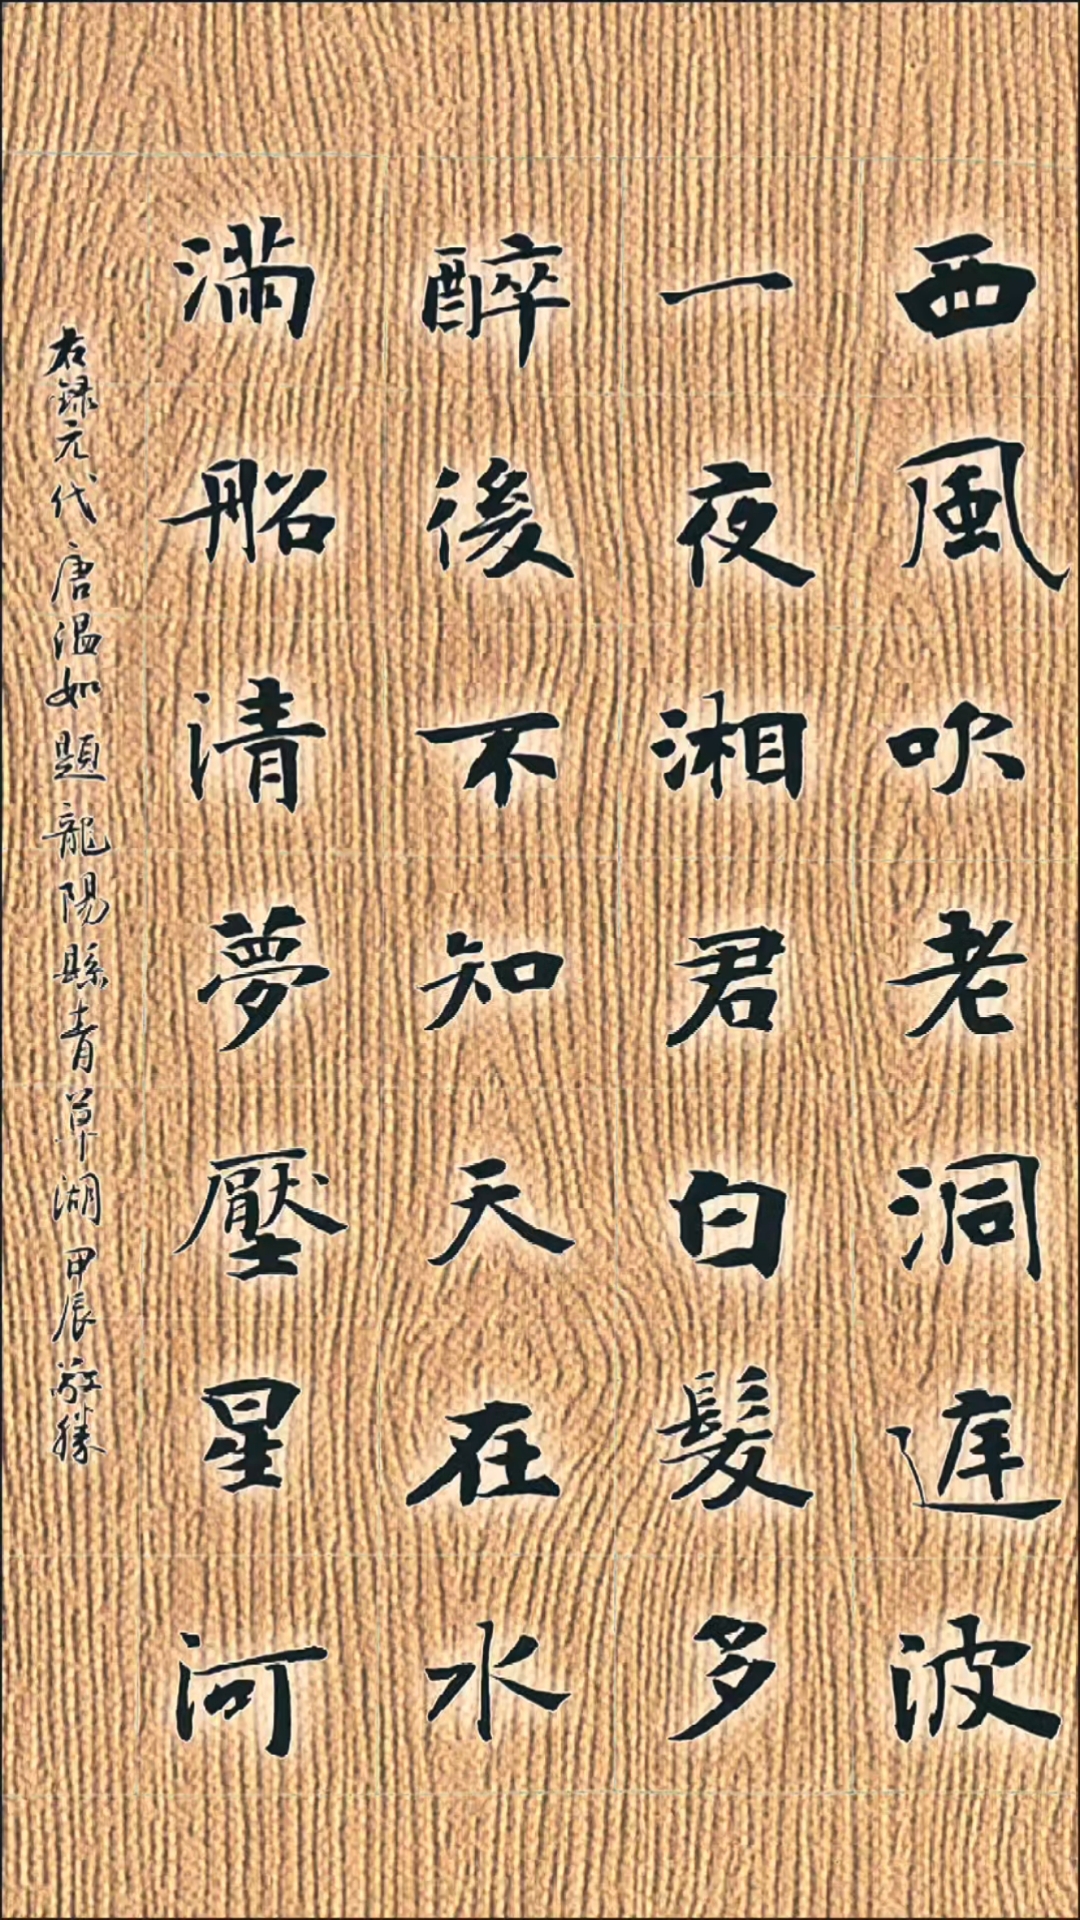 西風吹老洞庭波
一夜湘君白髮多
醉後不知天在水
滿船清夢壓星河
右録元代唐温如題龍陽縣青草湖甲辰敬勝